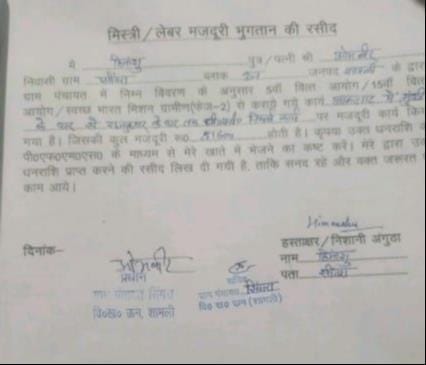 मिस्त्री/लेबर मजदूरी भुगतान की रसीद
मैं हिमांशु पुत्र/पत्नी श्री ओमबीर
निवासी ग्राम ब्लाक ऊन जनपद शामली के द्वारा
ग्राम पंचायत में निम्न विवरण के अनुसार 5वां वित्त आयोग/15वां वित्त
आयोग/स्वच्छ भारत मिशन ग्रामीण(फेज-2) से कराये गये कार्य
के घर से राजकुमार के घर तक पर मजदूरी कार्य किया
गया है। जिसकी कुल मजदूरी रू0 होती है। कृपया उक्त धनराशि को
पी0एफ0एम0एस0 के माध्यम से मेरे खाते में भेजने का कष्ट करें। मेरे द्वारा उक्त
धनराशि प्राप्त करने की रसीद लिख दी गयी है, ताकि सनद रहे और वक्त जरूरत पर
काम आये।
Himanshu
हस्ताक्षर/निशानी अंगुठा
दिनांक-
नाम हिमांशु
पता
ओमबीर
प्रधान
ग्राम पंचायत
वि0ख0 ऊन, शामली
सचिव
ग्राम पंचायत
वि0 ख0 ऊन (शामली)